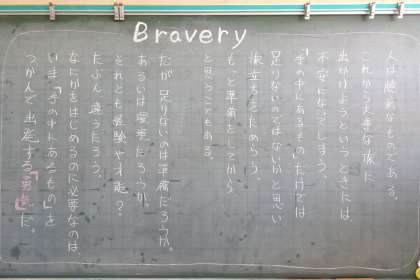 Bravery
人は臆病なものである。
これから大事な旅に
出かけようというときには
不安になってしまう。
「手の中にあるもの」だけでは
足りないのではないかと思い
旅立ちをためらう。
もっと準備をしてから
と思うこともある。
だが、足りないのは準備だろうか。
あるいは覚悟だろうか
それとも経験や才能？
たぶん違うだろう。
なにかをはじめるのに必要なのは
いま「手の中にあるもの」を
つかんで出発する「勇気」だ。